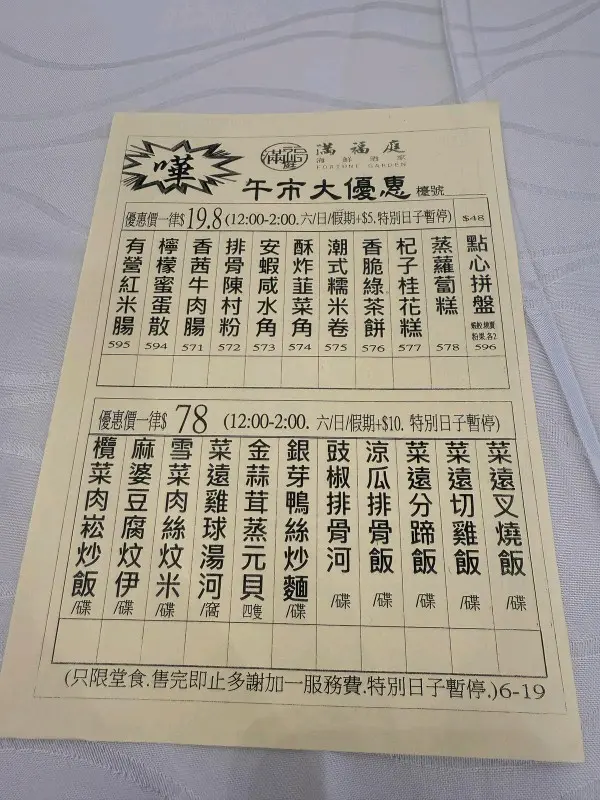 嘩
滿福庭
海鮮酒家
FORTUNE GARDEN
午市大優惠 檯號
優惠價一律$19.8(12:00-2:00. 六/日/假期+$5.特別日子暫停) $48
有營紅米腸 595
檸檬蜜蛋散 594
香茜牛肉腸 571
排骨陳村粉 572
安蝦咸水角 573
酥炸韮菜角 574
潮式糯米卷 575
香脆綠茶餅 576
杞子桂花糕 577
蒸蘿蔔糕 578
點心拼盤 粉果.各2 596
優惠價一律$ 78 (12:00-2:00. 六/日/假期+$10. 特別日子暫停)
欖菜肉崧炒飯 /碟
麻婆豆腐炆伊 /碟
雪菜肉絲炆米 /碟
菜遠雞球湯河 /窩
金蒜茸蒸元貝 四隻
銀芽鴨絲炒麵 /碟
豉椒排骨河 /碟
涼瓜排骨飯 /碟
菜遠分蹄飯 /碟
菜遠切雞飯 /碟
菜遠叉燒飯 /碟
(只限堂食.售完即止多謝加一服務費.特別日子暫停.)6-19